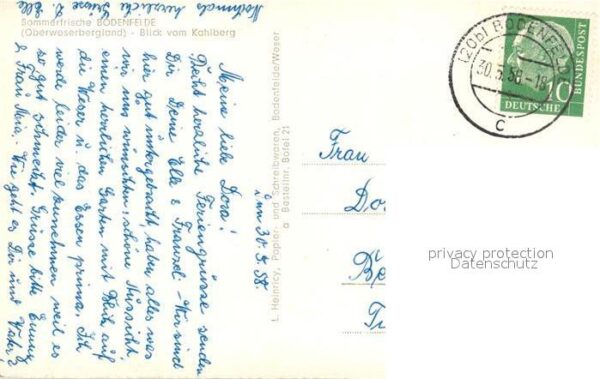 Nochmals herzliche Grüsse D. Elle
Sommerfrische BODENFELDE
(Oberweserbergland) - Blick vom Kahlberg
d. 30.5.58.
Meine liebe Dora!
Recht herzliche Feriengrüsse senden
Dir Deine Ella & Franzel - Wir sind
hier gut untergebracht, haben alles was
wir uns wünschten, schöne Aussicht
einen herrlichen Garten mit Blick auf
die Weser u. das Essen prima. Ich
werde leider viel zunehmen weil es
so gut schmeckt. Grüsse bitte
& Frau Mia. - Wie geht es Dir und Vater?
L. Heinricy, Papier- und Schreibwaren, Bodenfelde/Weser
a Bestellnr. Bofel 21
(20b) BODENFELDE
30.5.58-18
c
10
DEUTSCHE
BUNDESPOST
Frau
Do
Be
privacy protection
Datenschutz